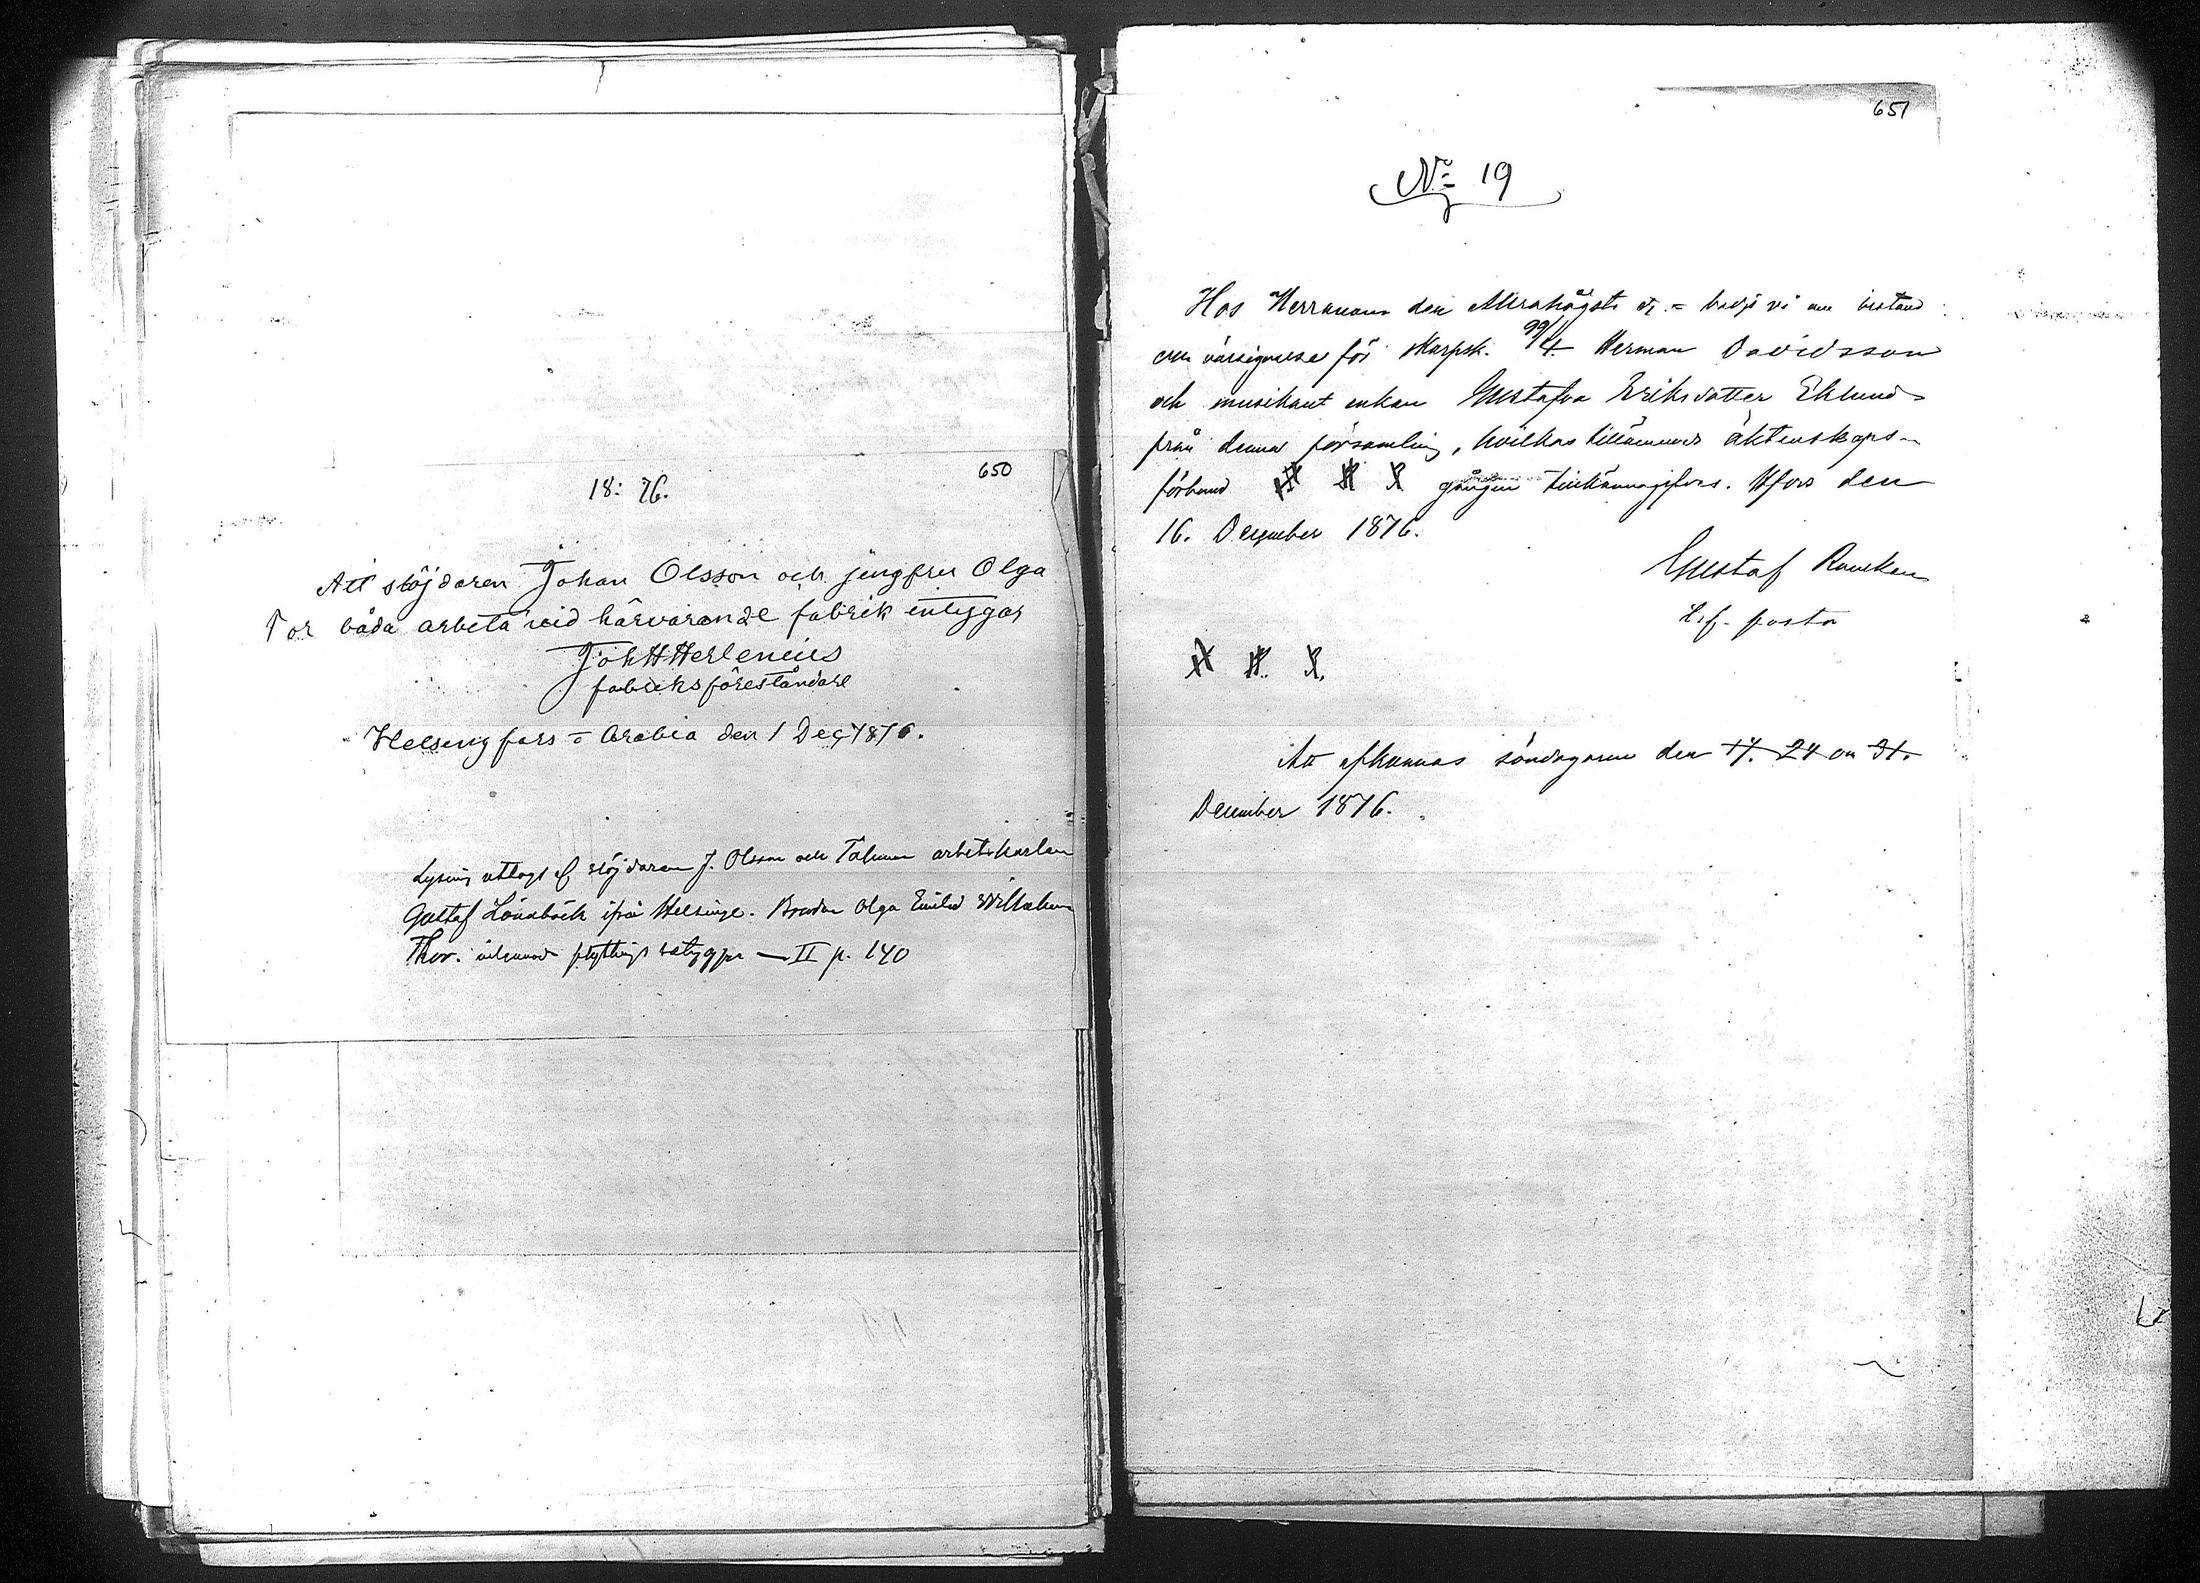 650
18: 76.
Att slöjdaren Johan Olsson och jungfru Olga
Tor båda arbeta vid härvarande fabrik intygar
Joh H Herlenius
fabriksföreståndare
Helsingfors = Arabia den 1 Dec 1876.
Lysning uttogs af slöjdaren J. Olsson och arbetskarlen
Gustaf Lönnbäck ifrån Helsinge. Bruden Olga Emilia Wilhelmina
Thor. flyttnings betyg — II p. 140
651
No 19
Hos Herrarnas den Allrahögste &c. = bedja vi om bistånd
och välsignelse för skarpsk. 99/4 Herman Davidsson
och musikant enkan Gustafva Eriksdotter Eklund
från denna församling, hvilkas tillämnade äktenskaps-
förbund gången tillkännagifves. Hfors den
16. December 1876.
Gustaf Rancken
t.f. pastor
Att afkunnas söndagarne den 17. 24 och 31.
December 1876.